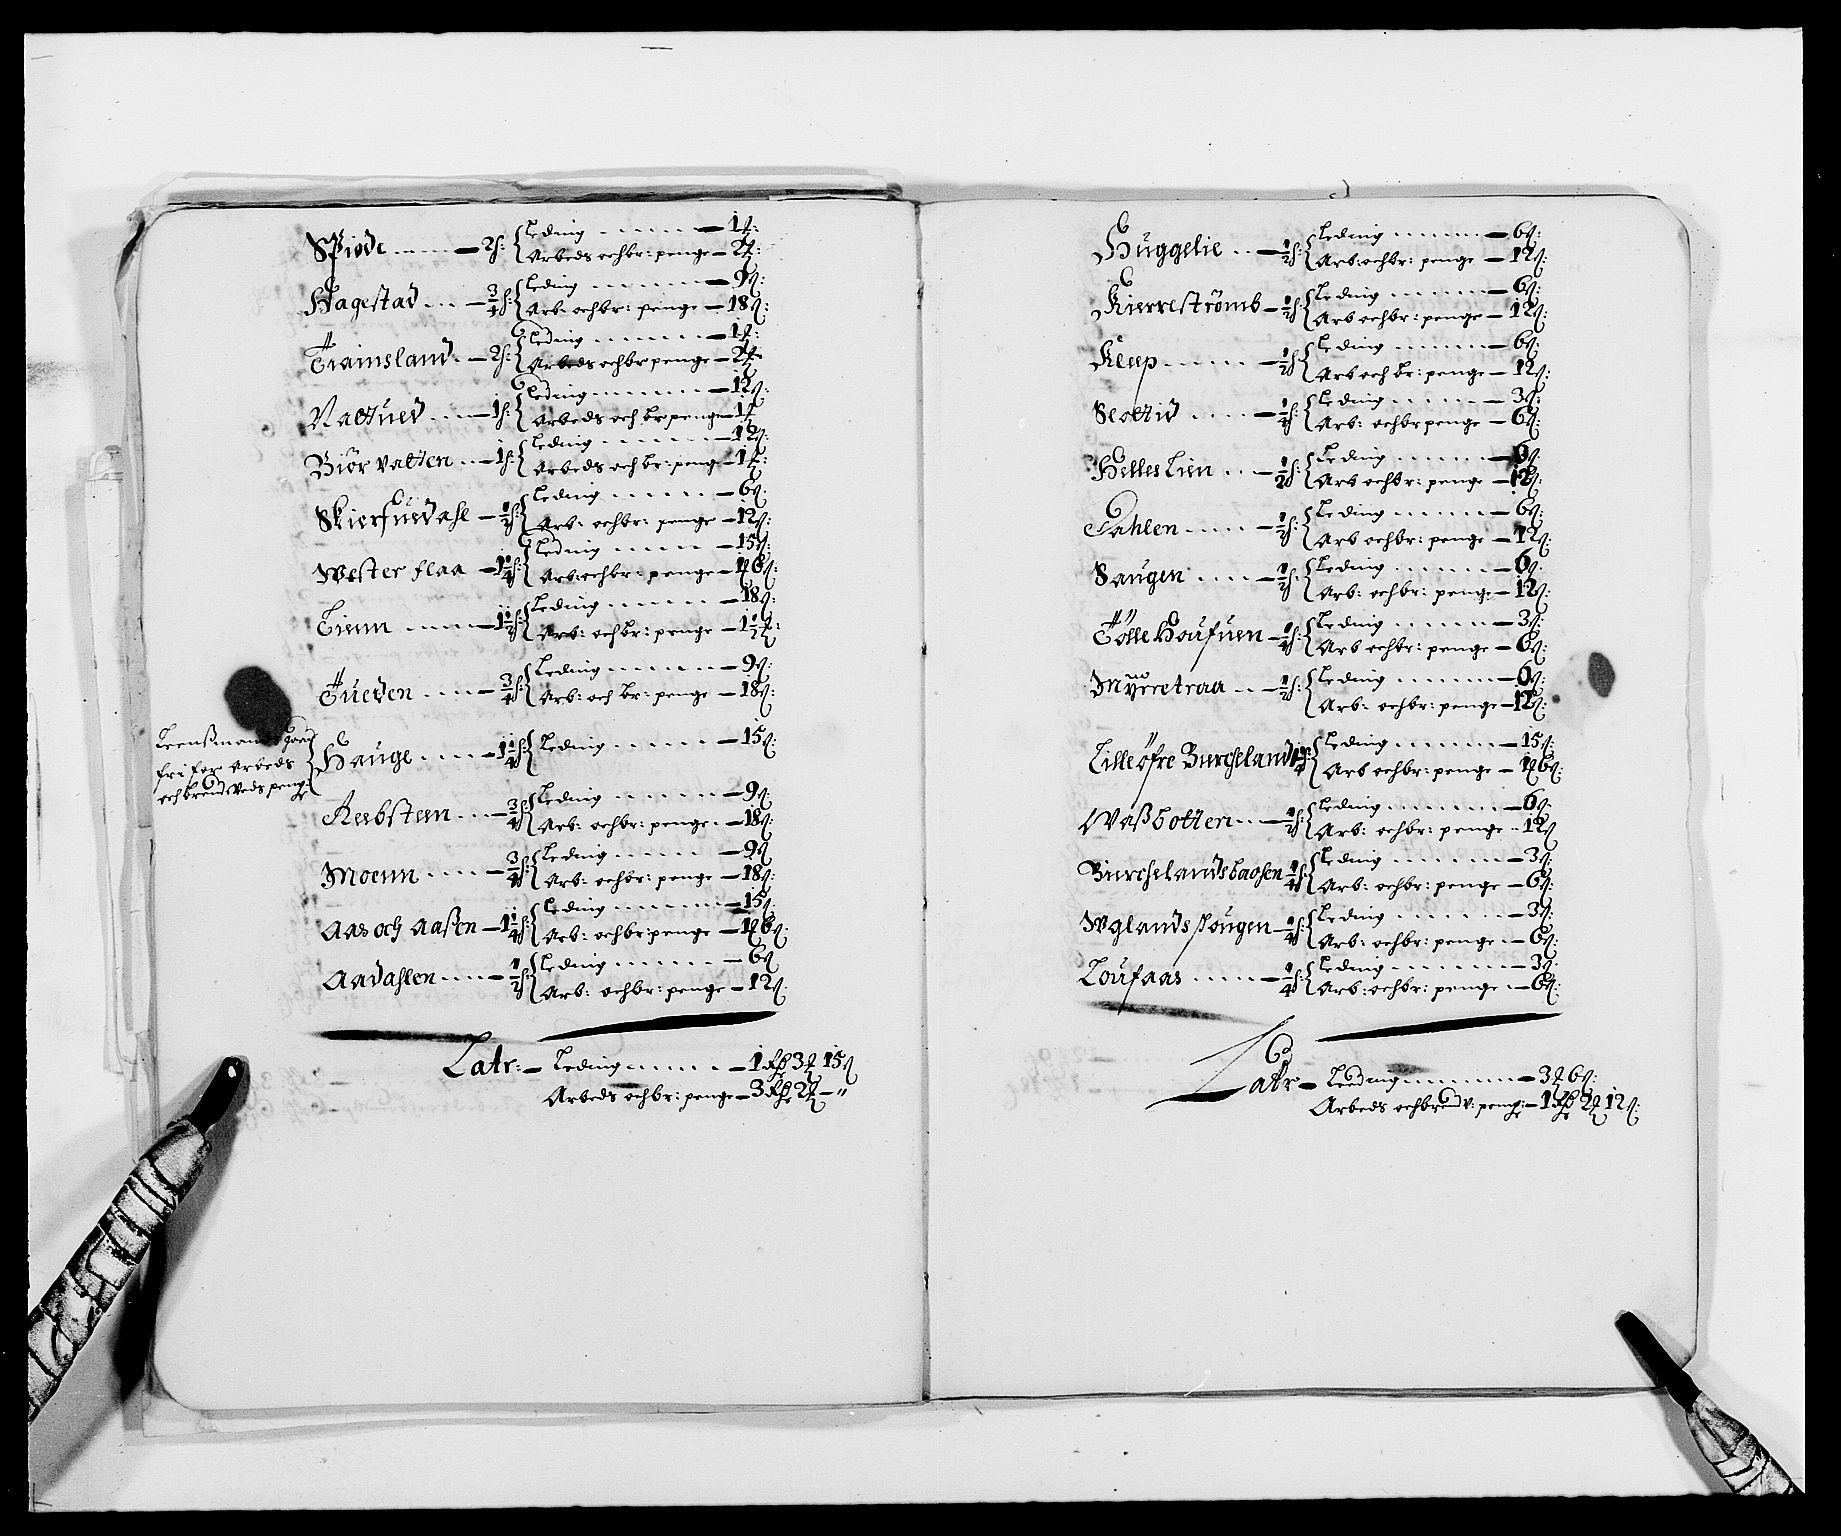 Spiode ..... — 2 h: { Leding ....... — 1 ℔:
Arbeds och br: penge — 2 ℔:
Hagestad ... — 3/4 h: { Leding ....... — 9 ß:
Arb: och br: penge — 18 ß:
Trainsland .. — 2 h: { Leding ....... — 1 ℔:
Arbeds och br penge — 2 ℔:
Nattued .... — 1 h: { Leding ....... — 12 ß:
Arbeds och br penge — 1 ℔
Biörvatten ... — 1 h: { Leding ....... — 12 ß:
Arbeds och br: peng — 1 ℔:
Skierfuedahl — 1/2 h: { Leding ...... — 6 ß:
Arb: och br: penge — 12 ß:
Wester flaa — 1 1/4 h: { Leding ...... — 15 ß:
Arb: och br: penge — 1 ℔ 6 ß:
Lienn ..... — 1 1/2 h: { Leding ....... — 18 ß:
Arb: och br: penge — 1 1/2 ℔:
Tueden ..... — 3/4 h: { Leding ....... — 9 ß:
Arb: och br: penge — 18 ß:
Leenßmands gaard
fri for Arbeds
och brendeveds penge
Hauge ..... — 1 1/4 h: { Leding ....... — 15 ß:
Reebsteen ... — 3/4 h: { Leding ....... — 9 ß:
Arb: och br: penge . — 18 ß:
Moenn ..... — 3/4 h: { Leding ...... — 9 ß
Arb: och br: penge — 18 ß:
Aas och Aaßen — 1 1/4 h: { Leding ....... — 15 ß:
Arb: och br: penge — 1 ℔ 6 ß:
Aadahlen ..... — 1/2 h: { Leding ....... — 6 ß
Arb: och br: penge — 12 ß:
Latr: — Leding ...... — 1 Rd 3 ℔ 15 ß
Arbeds och br: penge — 3 Rd 2 ℔ — "
Huggelie .. — 1/2 h: { Leding ....... — 6 ß:
Arb: och br: penge — 12 ß:
Kierreströmb — 1/2 h: { Leding ....... — 6 ß:
Arb och br: penge — 12 ß:
Kleep ...... — 1/2 h { Leding ....... — 6 ß:
Arb och br: penge — 12 ß:
Slottid ..... — 1/4 h: { Leding ....... — 3 ß:
Arb: och br penge — 6 ß:
Helleslien ... — 1/2 h: { Leding ....... — 6 ß:
Arb och br: penge — 12 ß:
Dahlen ..... — 1/2 h: { Leding ....... — 6 ß:
Arb och br: penge — 12 ß:
Haugen ..... — 1/2 h: { Leding ....... — 6 ß:
Arb: och br: penge — 12 ß:
Tolle Houfuen — 1/4 h: { Leding ....... — 3 ß:
Arb och br: penge — 6 ß:
Myrretraa ... — 1/2 h: { Leding ....... — 6 ß:
Arb: och br: penge — 12 ß:
Lille öfre Burcheland 1 1/4 h: { Leding ....... — 15 ß:
Arb och br: penge — 1 ℔ 6 ß:
Waßbotten ... — 1/2 h: { Leding ....... — 6 ß:
Arb: och br: penge .. 12 ß
Burchelandsbachen 1/4 h: { Leding ....... — 3 ß:
Arb: och br: penge — 6 ß:
Wglandshougen — 1/4 h: { Leding ....... — 3 ß:
Arb: och br: penge . — 6 ß:
Loufaas ..... — 1/4 h: { Leding ....... — 3 ß:
Arb: och br: penge . — 6 ß:
Latr — Leding ....... — 3 ℔ 6 ß:
Arbeds och brendv: penge: — 1 Rd 2 ℔ 12 ß: